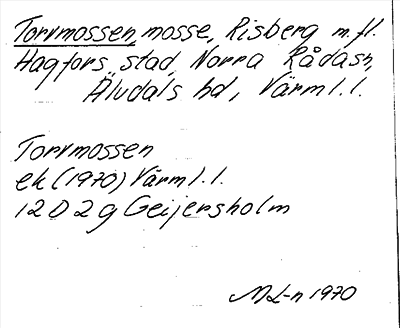 Torvmossen, mosse, Risberg m.fl.
Hagfors stad, Norra Rådasn,
Älvdals hd, Värml.l.
Torvmossen
ek (1970) Värml.l.
12 D 2 g Geijersholm
ML-n 1970